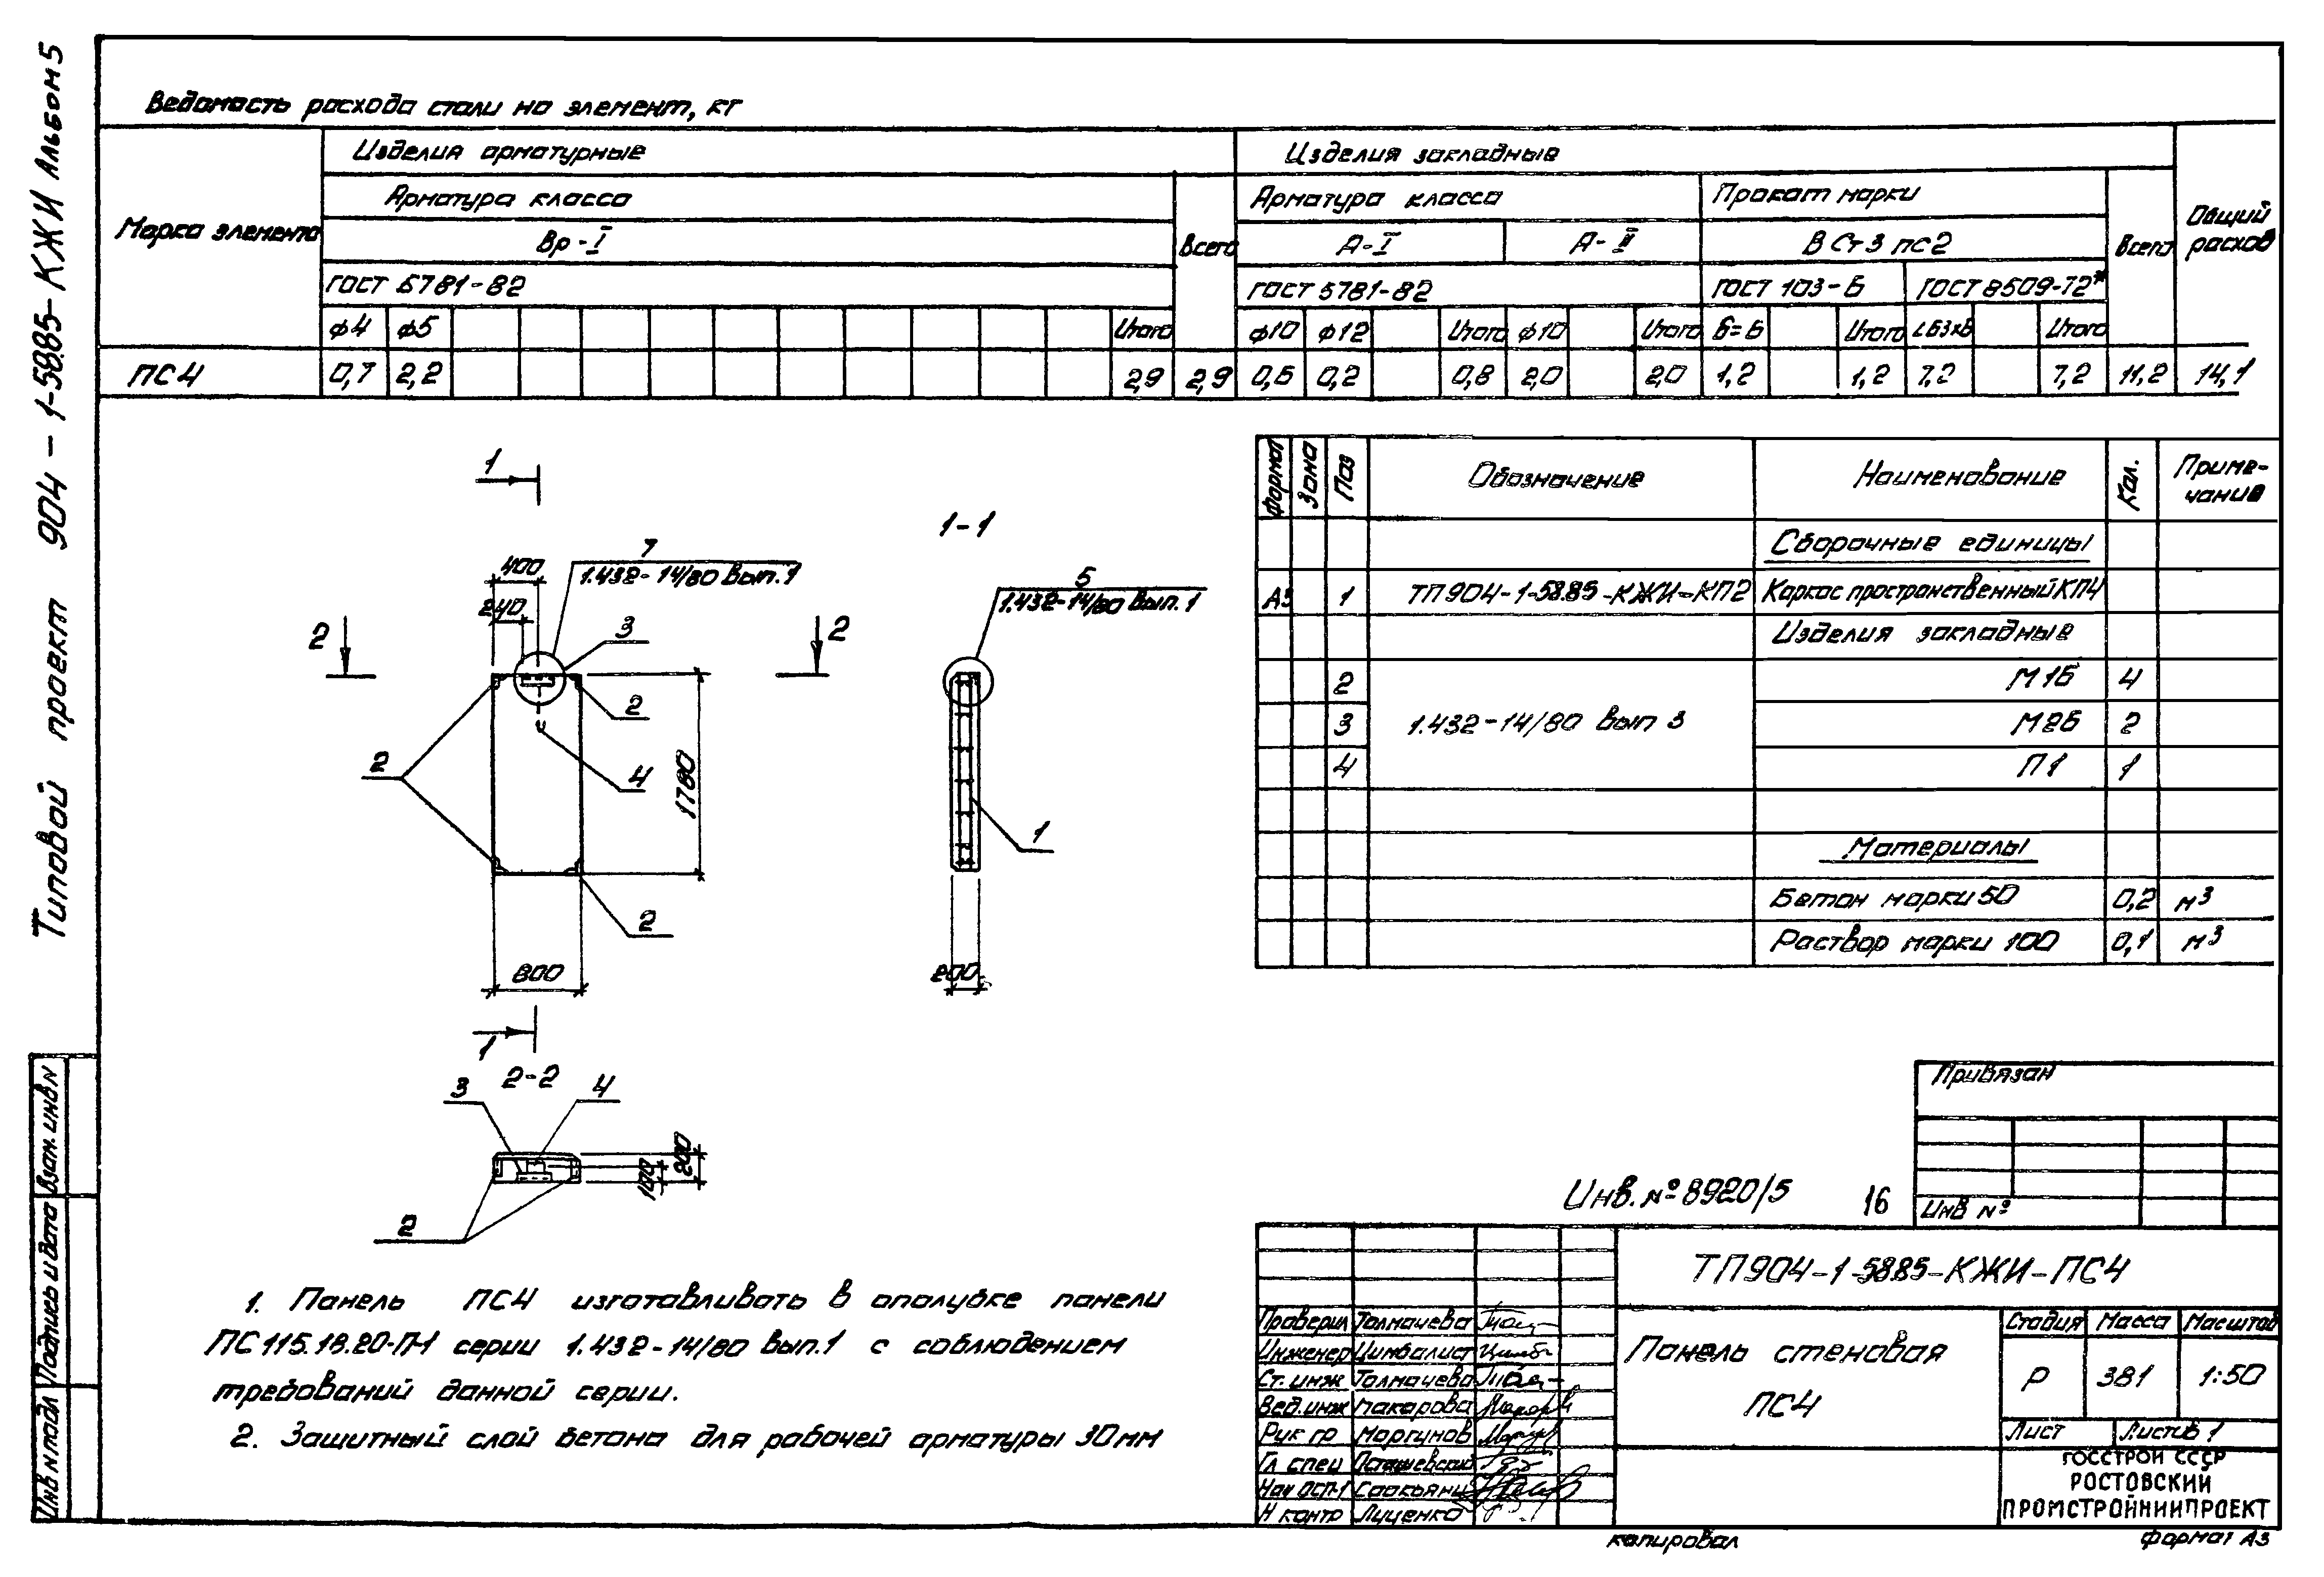 Типовой проект 904-1-58.85-КЖИ Альбом 5
Ведомасть расхода стали на элемент, кг
Марка элемента
Изделия арматурные
Изделия закладные
Общий расход
Арматура класса
Всего
Арматура класса
Прокат марки
Всего
Вр-I
А-I
А-II
В Ст 3 пс 2
ГОСТ 6781-82
ГОСТ 5781-82
ГОСТ 103-Б
ГОСТ 8509-72*
ф4 ф5 Итого ф10 ф12 Итого ф10 Итого б=Б Итого Итого
ПС4 0,7 2,2 2,9 2,9 0,6 0,2 0,8 2,0 2,0 1,2 1,2 7,2 7,2 11,2 14,1
Формат Зона Поз Обозначение Наименование Кол. Приме-
чание
Сборочные единицы
А3 1 ТП904-1-58.85-КЖИ-КП2 Каркас пространственный КП4
Изделия закладные
2 М1Б 4
3 1.432-14/80 вып 3 М2Б 2
4 П1 1
Материалы
Бетон марки 50 0,2 м3
Раствор марки 100 0,1 м3
1
400
240
7
1.432-14/80 Вып.1
3
2
2
2
2
4
1780
2
800
1
1-1
5
1.432-14/80 Вып. 1
1
200
2-2
3
4
100
200
2
1. Панель ПС4 изготавливать в опалубке панели
ПС115.18.20-П-1 серии 1.432-14/80 вып.1 с соблюдением
требований данной серии.
2. Защитный слой бетона для рабочей арматуры 30мм
Инв. № 8920/5 16
Привязан
Инв №
ТП904-1-58.85-КЖИ-ПС4
Проверил Толмачева
Инженер Цимбалист
Ст. инж Толмачева
Вед.инж Макарова
Рук гр Моргунов
Гл спец Осташевский
Нач ОСП-1 Саакьянц
Н контр Луценко
Панель стеновая
ПС4
Стадия Масса Масштаб
Р 381 1:50
Лист Листов 1
ГОССТРОЙ СССР
РОСТОВСКИЙ
ПРОМСТРОЙНИИПРОЕКТ
копировал
Формат А3
Взам. инв N
Подпись и дата
Инв N подл